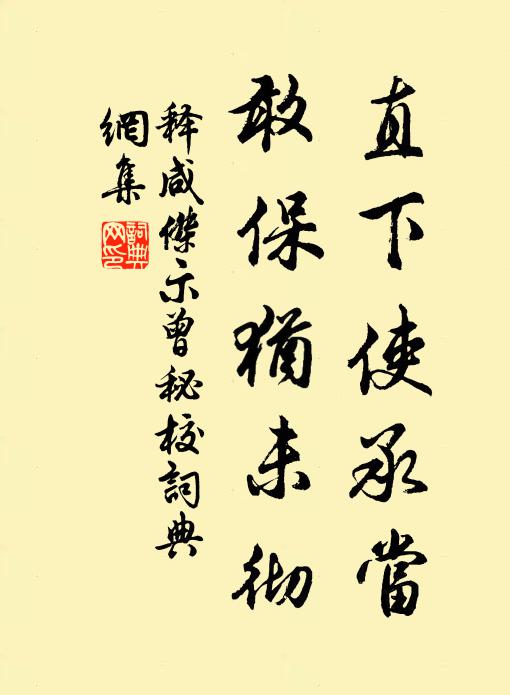 直下使承當
敢保猶未彻
释咸傑示曾秘校詞典
網集
詞典
网印